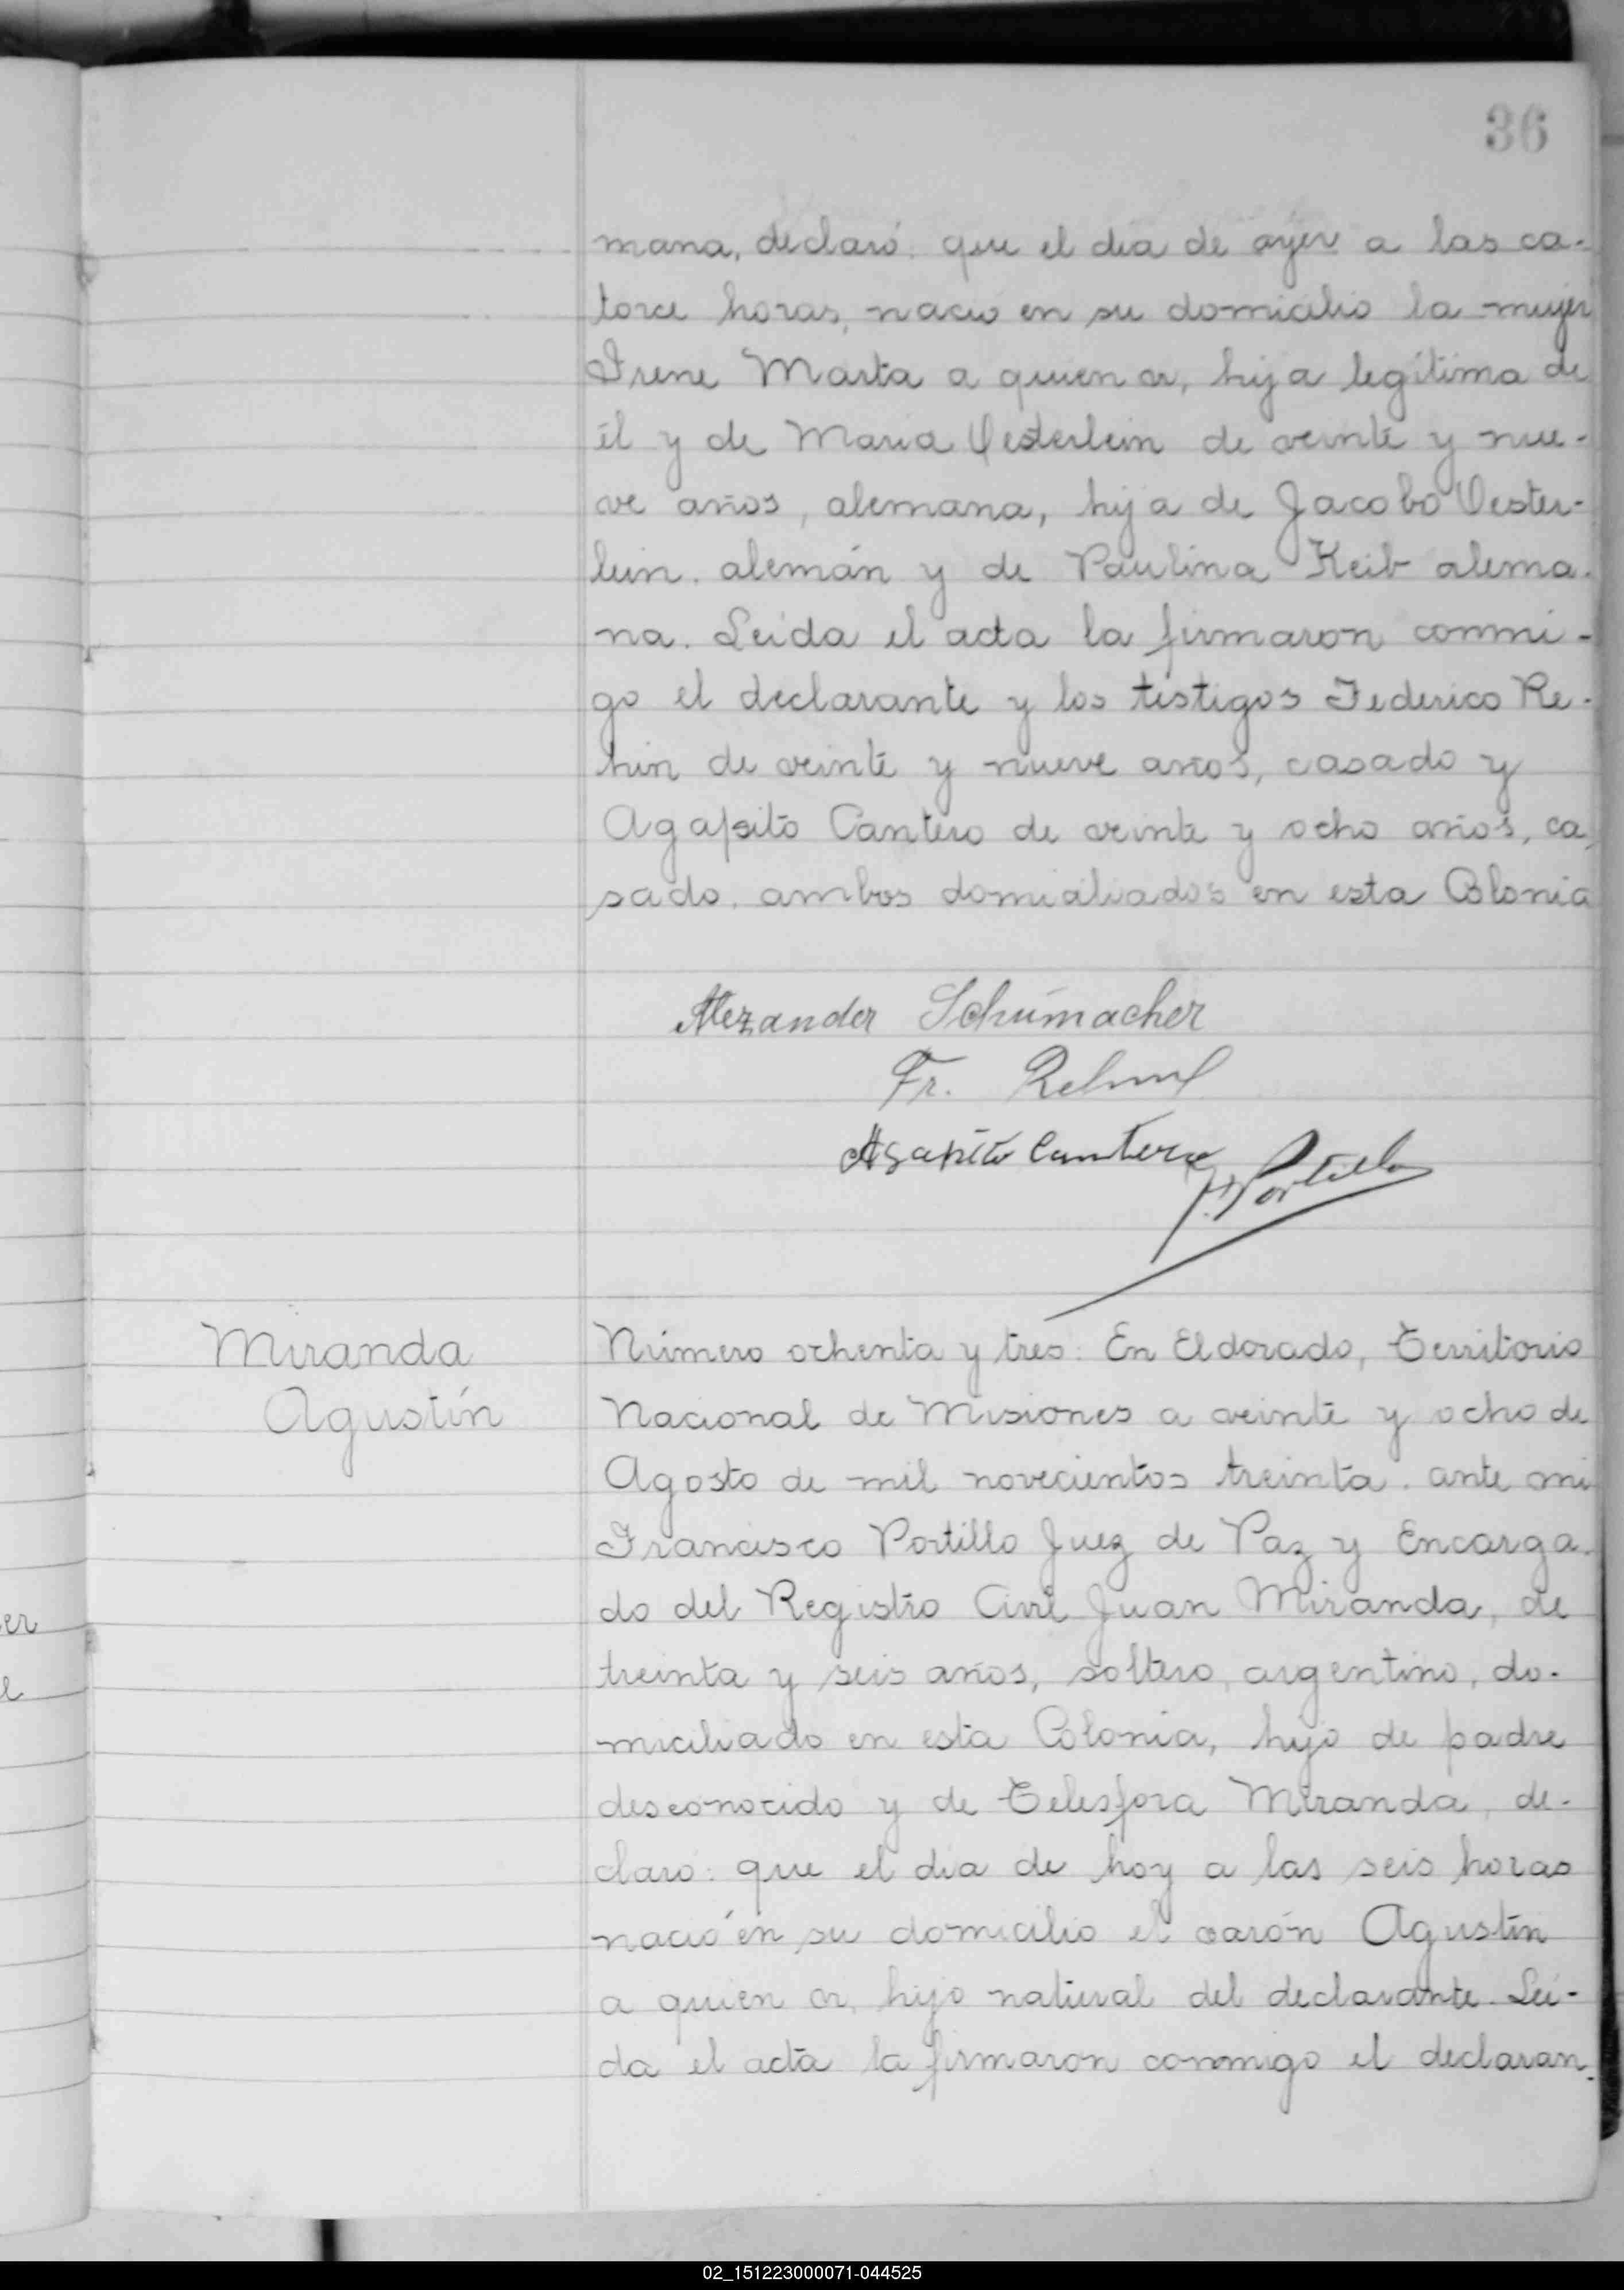 36
mana, declaró: que el día de ayer a las ca-
torce horas, nació en su domicilio la mujer
Irene Marta a quien vi, hija legítima de
él y de Maria Oesterlein de veinte y nue-
ve años, alemana, hija de Jacobo Oester-
lein, alemán y de Paulina Keib alema-
na. Leída el acta la firmaron conmi-
go el declarante y los testigos Federico Re-
hin de veinte y nueve años, casado y
Agapito Cantero de veinte y ocho años, ca-
sado, ambos domiciliados en esta Colonia
Alexander Schumacher
Fr.
Agapito Cantero
F. Portillo
Miranda
Agustín
Número ochenta y tres: En Eldorado, Territorio
Nacional de Misiones a veinte y ocho de
Agosto de mil novecientos treinta, ante mi
Francisco Portillo Juez de Paz y Encarga-
do del Registro Civil Juan Miranda, de
treinta y seis años, soltero, argentino, do-
miciliado en esta Colonia, hijo de padre
desconocido y de Telesfora Miranda, de-
claró: que el día de hoy a las seis horas
nació en su domicilio el varón Agustín
a quien vi, hijo natural del declarante. Leí-
da el acta la firmaron conmigo el declaran-
er
e
02_151223000071-044525